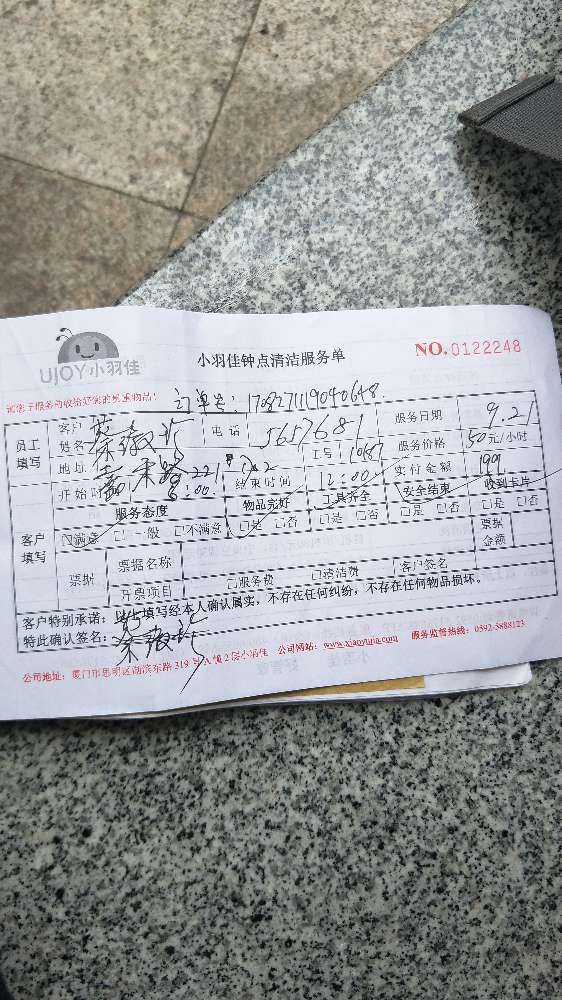 UJOY小羽佳
小羽佳钟点清洁服务单
NO.0122248
订单号：170827119040648
员工填写
客户姓名
电话 5657681
服务日期 9.21
地址
工号 10187
服务价格 50元/小时
开始时间 8:00
结束时间 12:00
实付金额 199
客户填写
服务态度 物品完好 工具齐全 安全结束 收到卡片
☑满意 □一般 □不满意 □是 □否 □是 □否 □是 □否 □是 □否
票据
票据名称
票据金额
开票项目 □服务费 □清洁费 客户签名
客户特别承诺：以上填写经本人确认属实，不存在任何纠纷，不存在任何物品损坏。
特此确认签名：
公司地址：厦门市思明区湖滨东路319号A幢2层小羽佳 公司网站：www.xiaoyujia.com 服务监督热线：0592-5888123